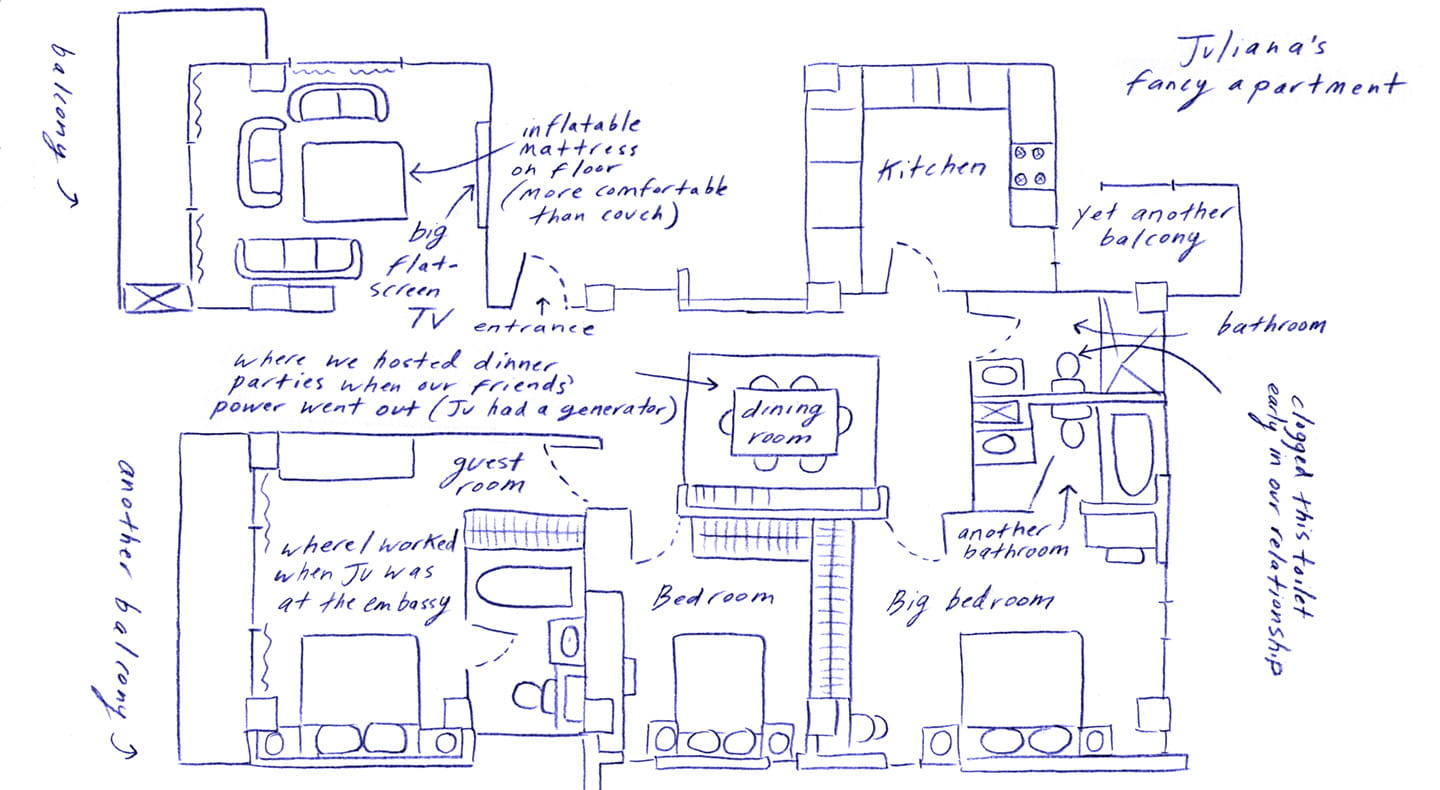 Juliana's
fancy apartment
balcony
inflatable
mattress
on floor
(more comfortable
than couch)
big
flat-
screen
TV
entrance
Kitchen
yet another
balcony
bathroom
clogged this toilet
early in our relationship
where we hosted dinner
parties when our friends'
power went out (Ju had a generator)
dining
room
guest
room
another balcony
where I worked
when Ju was
at the embassy
Bedroom
Big bedroom
another
bathroom